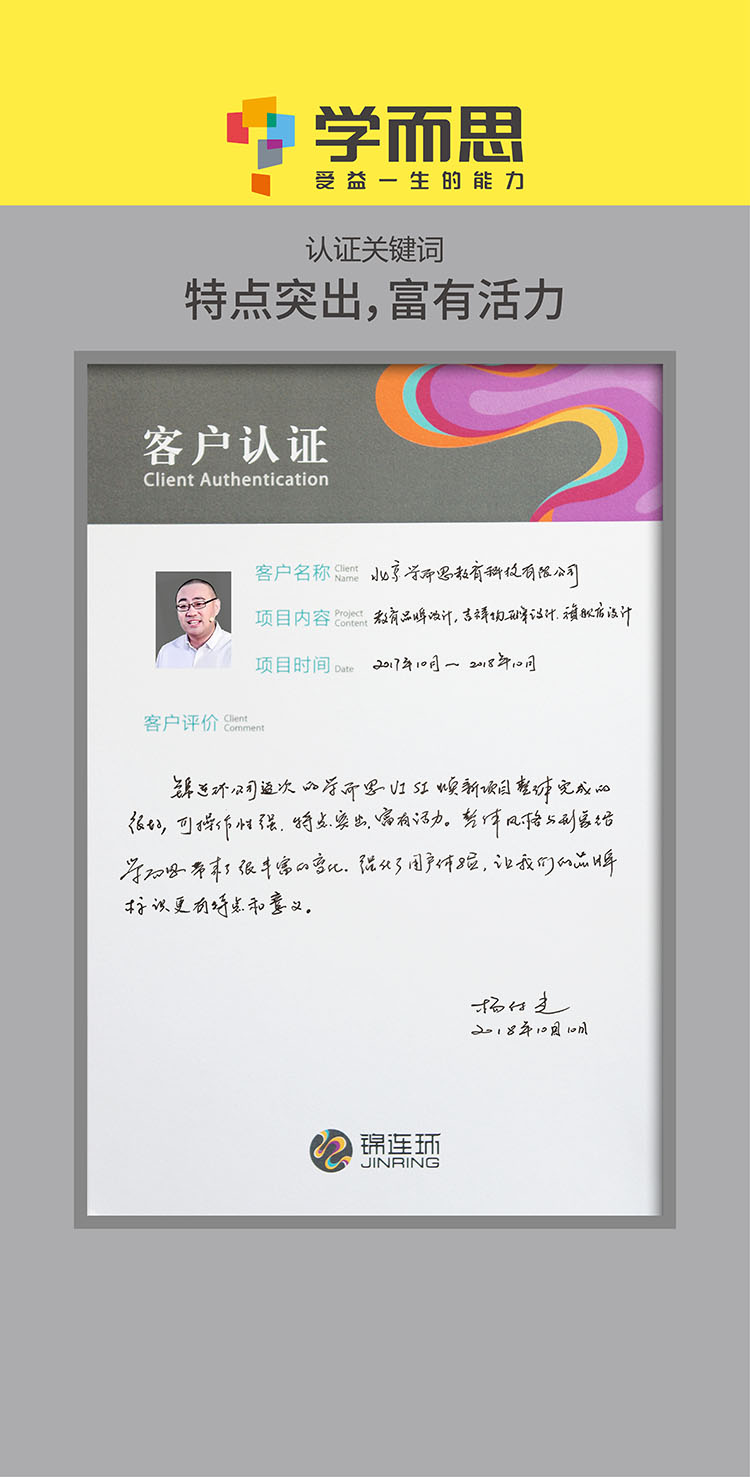 学而思
受益一生的能力
认证关键词
特点突出，富有活力
客户认证
Client Authentication
客户名称 Client Name 北京学而思教育科技有限公司
项目内容 Project Content 教育品牌设计，吉祥物形象设计、旗舰店设计
项目时间 Date 2017年10月～2018年10月
客户评价 Client Comment
锦连环公司这次的学而思VI SI焕新项目整体完成的
很好，可操作性强、特点突出、富有活力。整体风格与形象给
学而思带来了很丰富的变化、强化了用户体验，让我们的品牌
标识更有特点和意义。
2018年10月10日
锦连环
JINRING